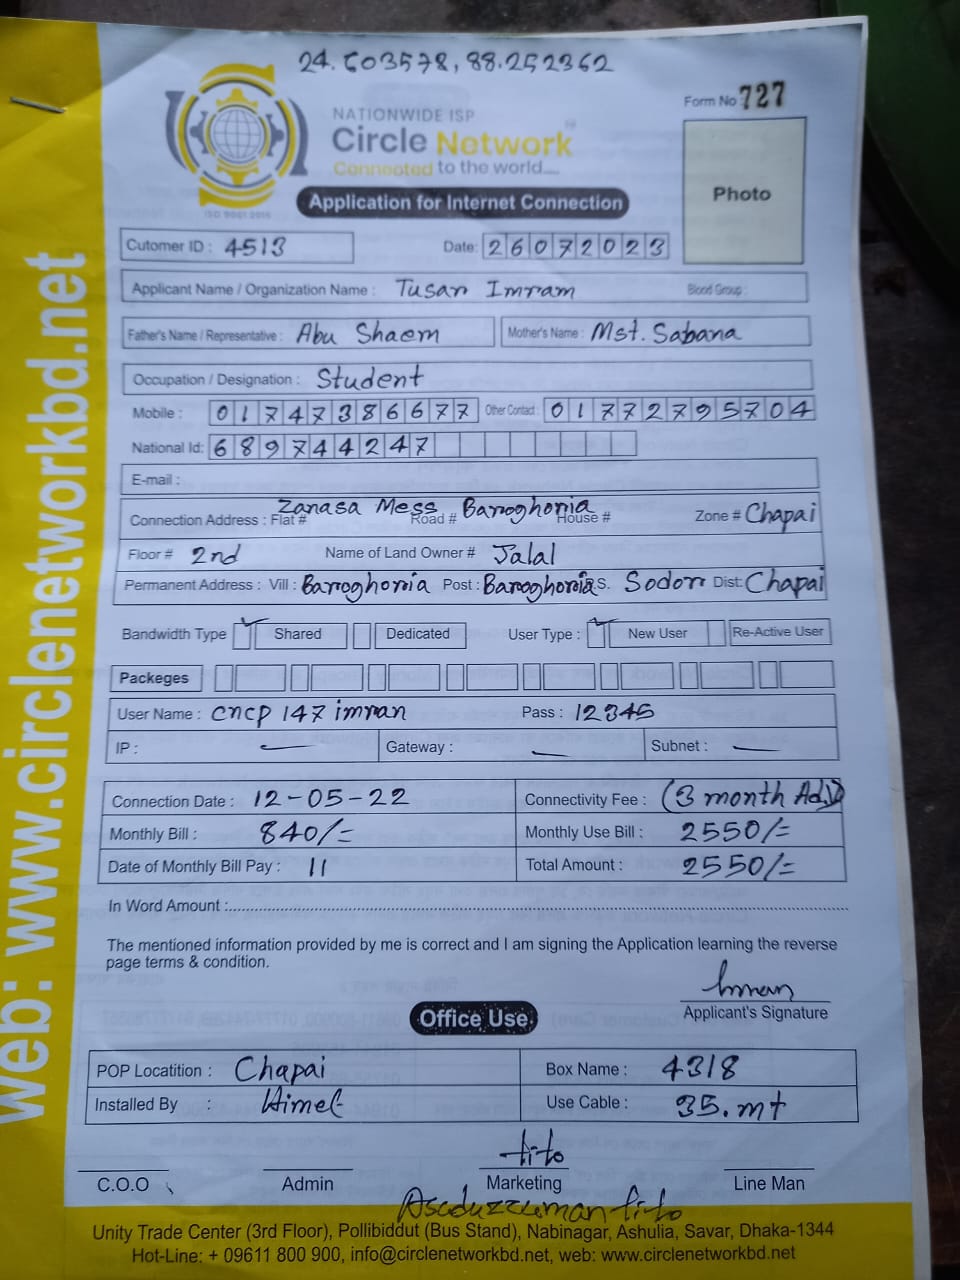 24.603578, 88.252362
Form No 727
NATIONWIDE ISP
Circle Network
Connected to the world....
ISO 9001:2015
Photo
Application for Internet Connection
Cutomer ID : 4513 Date: 26072023
Applicant Name / Organization Name : Tusar Imram Blood Group :
Father's Name / Representative : Abu Shaem Mother's Name : Mst. Sabana
Occupation / Designation : Student
Mobile : 01747386677 Other Contact : 01772795704
National Id: 689744247
E-mail :
Connection Address : Flat # Zanasa Mess Road # Barroghoria House # Zone # Chapai
Floor # 2nd Name of Land Owner # Jalal
Permanent Address : Vill : Barroghoria Post : Barroghoria P.S. Sodorr Dist: Chapai
Bandwidth Type Shared Dedicated User Type : New User Re-Active User
Packeges
User Name : cncp 147 imran Pass : 12345
IP : — Gateway : — Subnet : —
Connection Date : 12-05-22 Connectivity Fee : (3 month Adv)
Monthly Bill : 840/= Monthly Use Bill : 2550/=
Date of Monthly Bill Pay : 11 Total Amount : 2550/=
In Word Amount :
The mentioned information provided by me is correct and I am signing the Application learning the reverse
page terms & condition.
Imran
Applicant's Signature
Office Use
POP Locatition : Chapai Box Name : 4318
Installed By : Himel Use Cable : 35.mt
tito
C.O.O Admin Marketing Line Man
Asaduzzaman tito
Unity Trade Center (3rd Floor), Pollibiddut (Bus Stand), Nabinagar, Ashulia, Savar, Dhaka-1344
Hot-Line: + 09611 800 900, info@circlenetworkbd.net, web: www.circlenetworkbd.net
web: www.circlenetworkbd.net